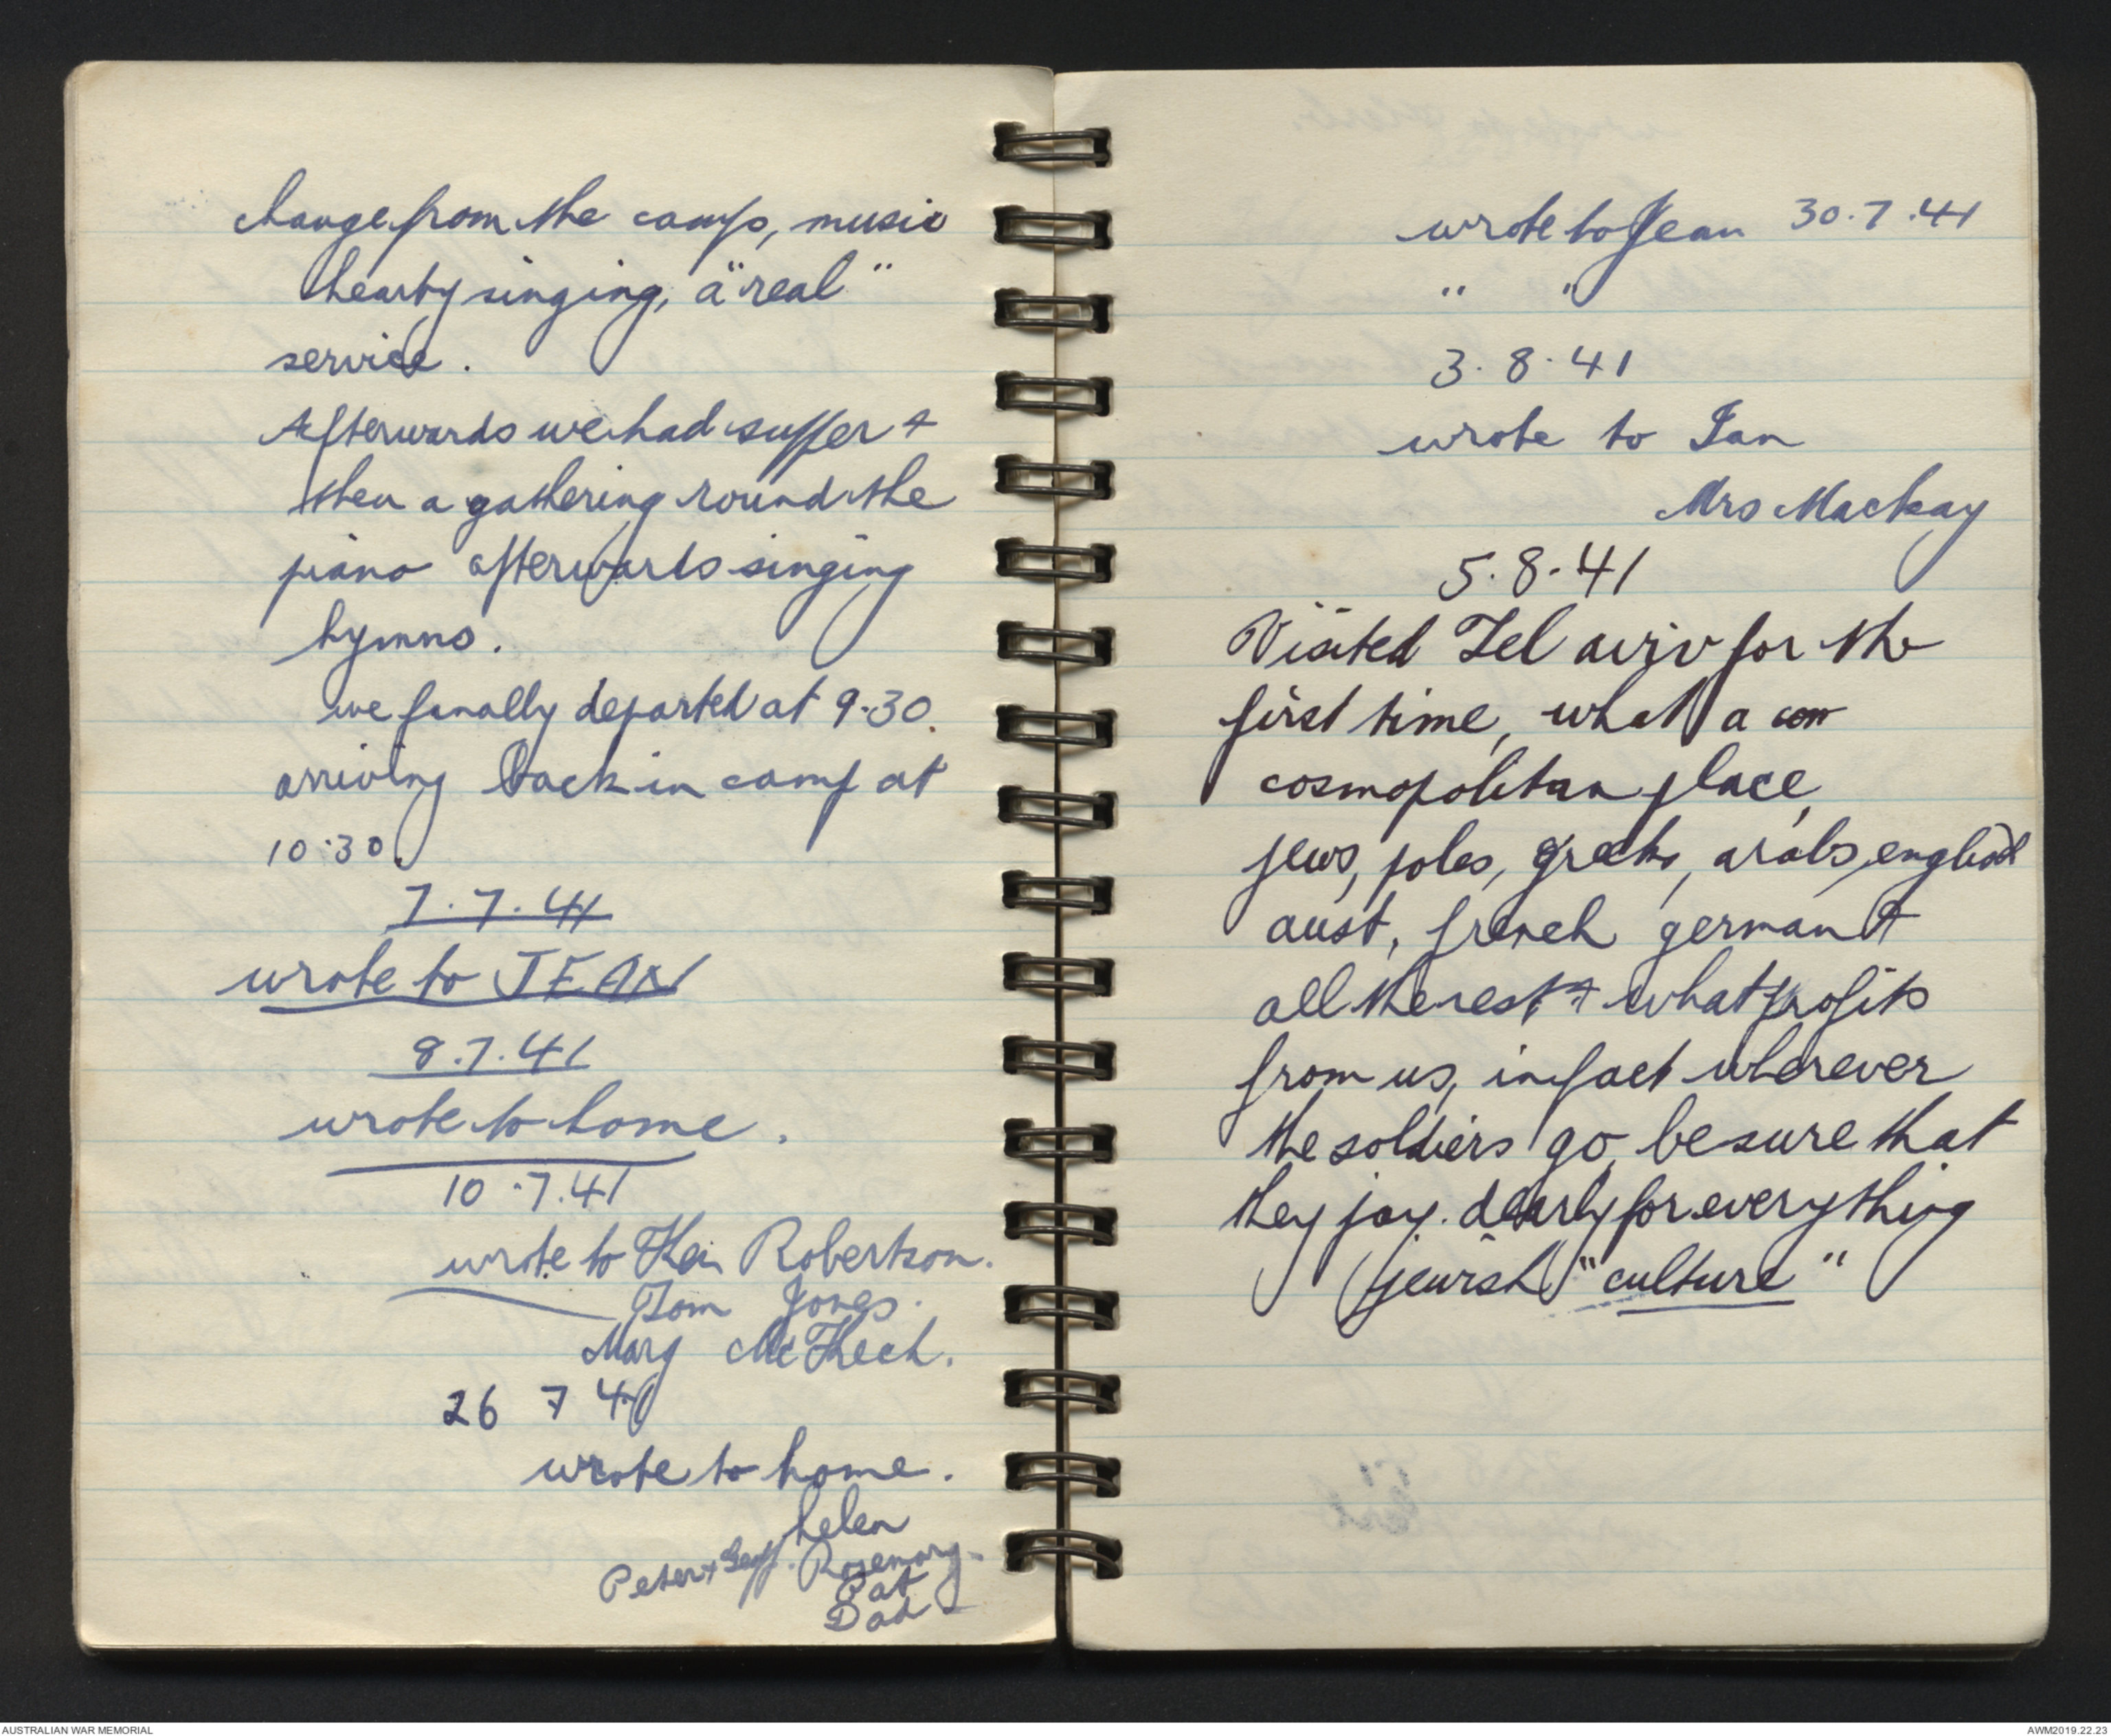 change from the camp, music
hearty singing, a "real"
service.
Afterwards we had supper +
then a gathering round the
piano afterwards singing
hymns.
we finally departed at 9.30.
arriving back in camp at
10.30.
7.7.41
wrote to JEAN
8.7.41
wrote to home.
10.7.41
wrote to Ken Robertson.
Tom Jones.
Mary McKech.
26 7 41
wrote to home.
helen
Peter + Geoff. Rosemary
Pat
Dad
wrote to Jean 30.7.41
" "
3.8.41
wrote to Ian
Mrs Mackay
5.8.41
Visited Tel aviv for the
first time, what a com
cosmopolitan place,
jews, poles, greeks, arabs, english
aust, french german +
all the rest + what profits
from us, in fact wherever
the soldiers go, be sure that
they pay. dearly for everything
jewish "culture"
AUSTRALIAN WAR MEMORIAL
AWM2019.22.23